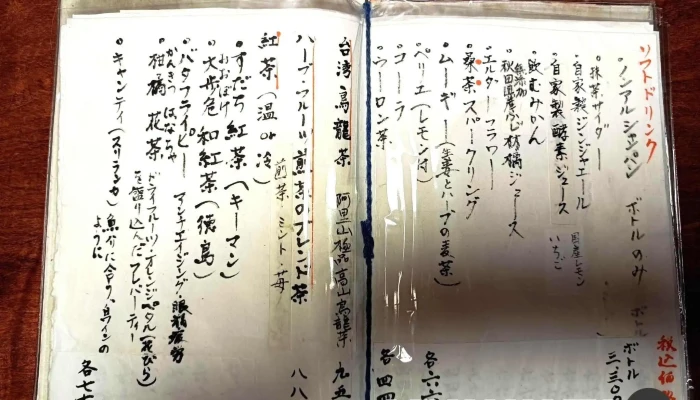 ソフトドリンク
ノンアルシャンパン ボトルのみ ボトル 三.三〇
税込価
抹茶サイダー
自家製ジンジャエール 国産レモン
自家製酵素ジュース いちご
飲むみかん
無添加
秋田県産ふじ林檎ジュース
エルダーフラワー
桑茶スパークリング
ムーギー(生姜とハーブの麦茶) 各六六
ペリエ(レモン付)
コーラ
ウーロン茶 各四四
台湾烏龍茶 阿里山極品高山烏龍茶 九五
ハーブ・フルーツ・煎茶のブレンド茶 八八
煎茶 ミント・苺
紅茶(温or冷)
すだち紅茶(キーマン)
おおぼけ
大歩危和紅茶(徳島)
バタフライピー アンチエイジング・眼精疲労
かんきつ はなちゃ
柑橘花茶 ドライフルーツ・オレンジペタル(花びら)
を盛り込んだフレーバーティー
キャンディ(スリランカ) 魚介に合う、白ワインの
ように 各七